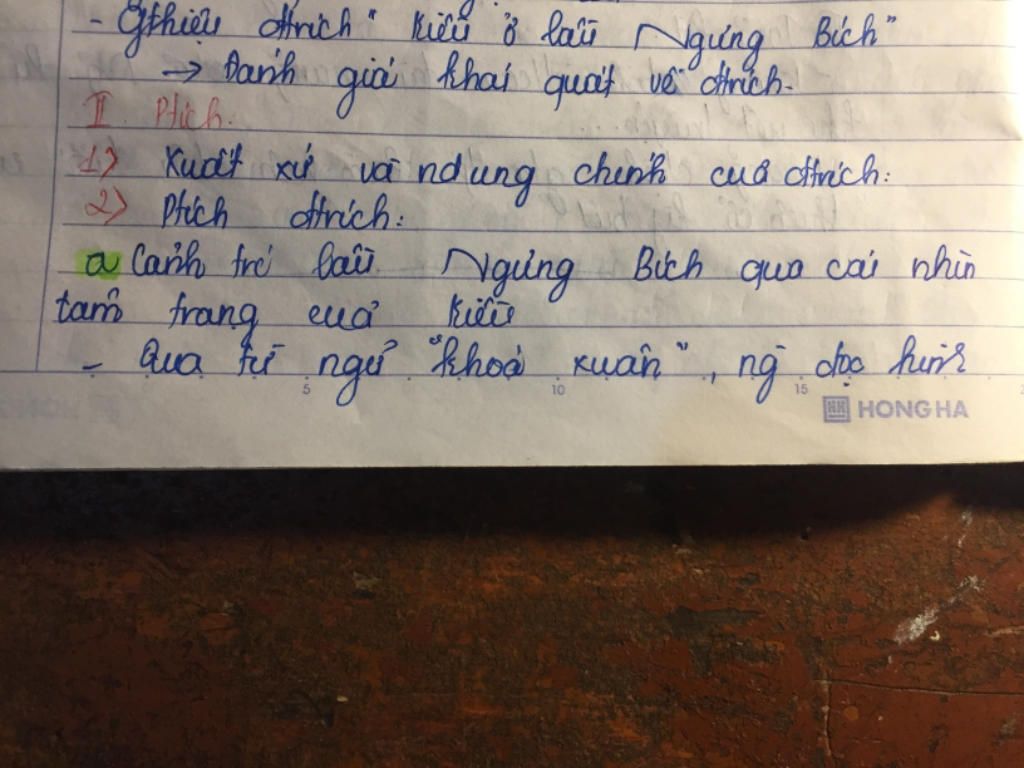 - Gthiệu đtrích "Kiều ở lầu Ngưng Bích"
→ Đánh giá khái quát về đtrích.
II Ptích.
1> Xuất xứ và ndung chính của đtrích:
2> Ptích đtrích:
a Cảnh trc lầu Ngưng Bích qua cái nhìn
tâm trạng của Kiều
- Qua từ ngữ "khoá xuân", ng đọc hình
5 10 15
HONG HA